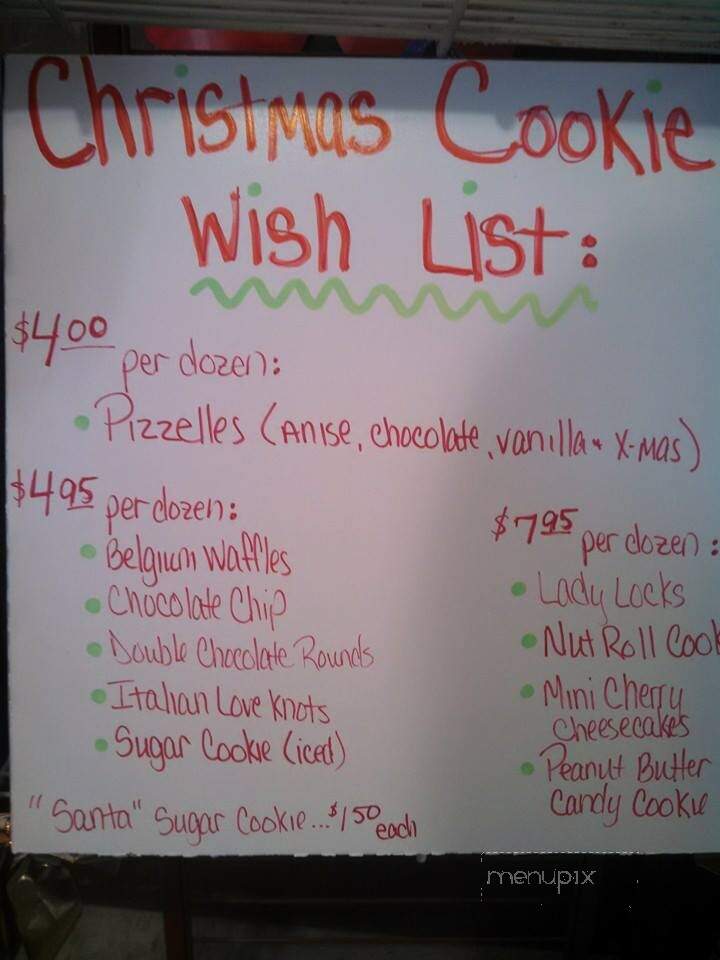 Christmas Cookie
Wish List:
$4.00 per dozen:
• Pizzelles (Anise, chocolate, vanilla + X-mas)
$4.95 per dozen:
• Belgium Waffles
• Chocolate Chip
• Double Chocolate Rounds
• Italian Love Knots
• Sugar Cookie (iced)
"Santa" Sugar Cookie...$1.50 each
$7.95 per dozen:
• Lady Locks
• Nut Roll
• Mini Cherry
Cheesecakes
• Peanut Butter
Candy Cookie
menupix